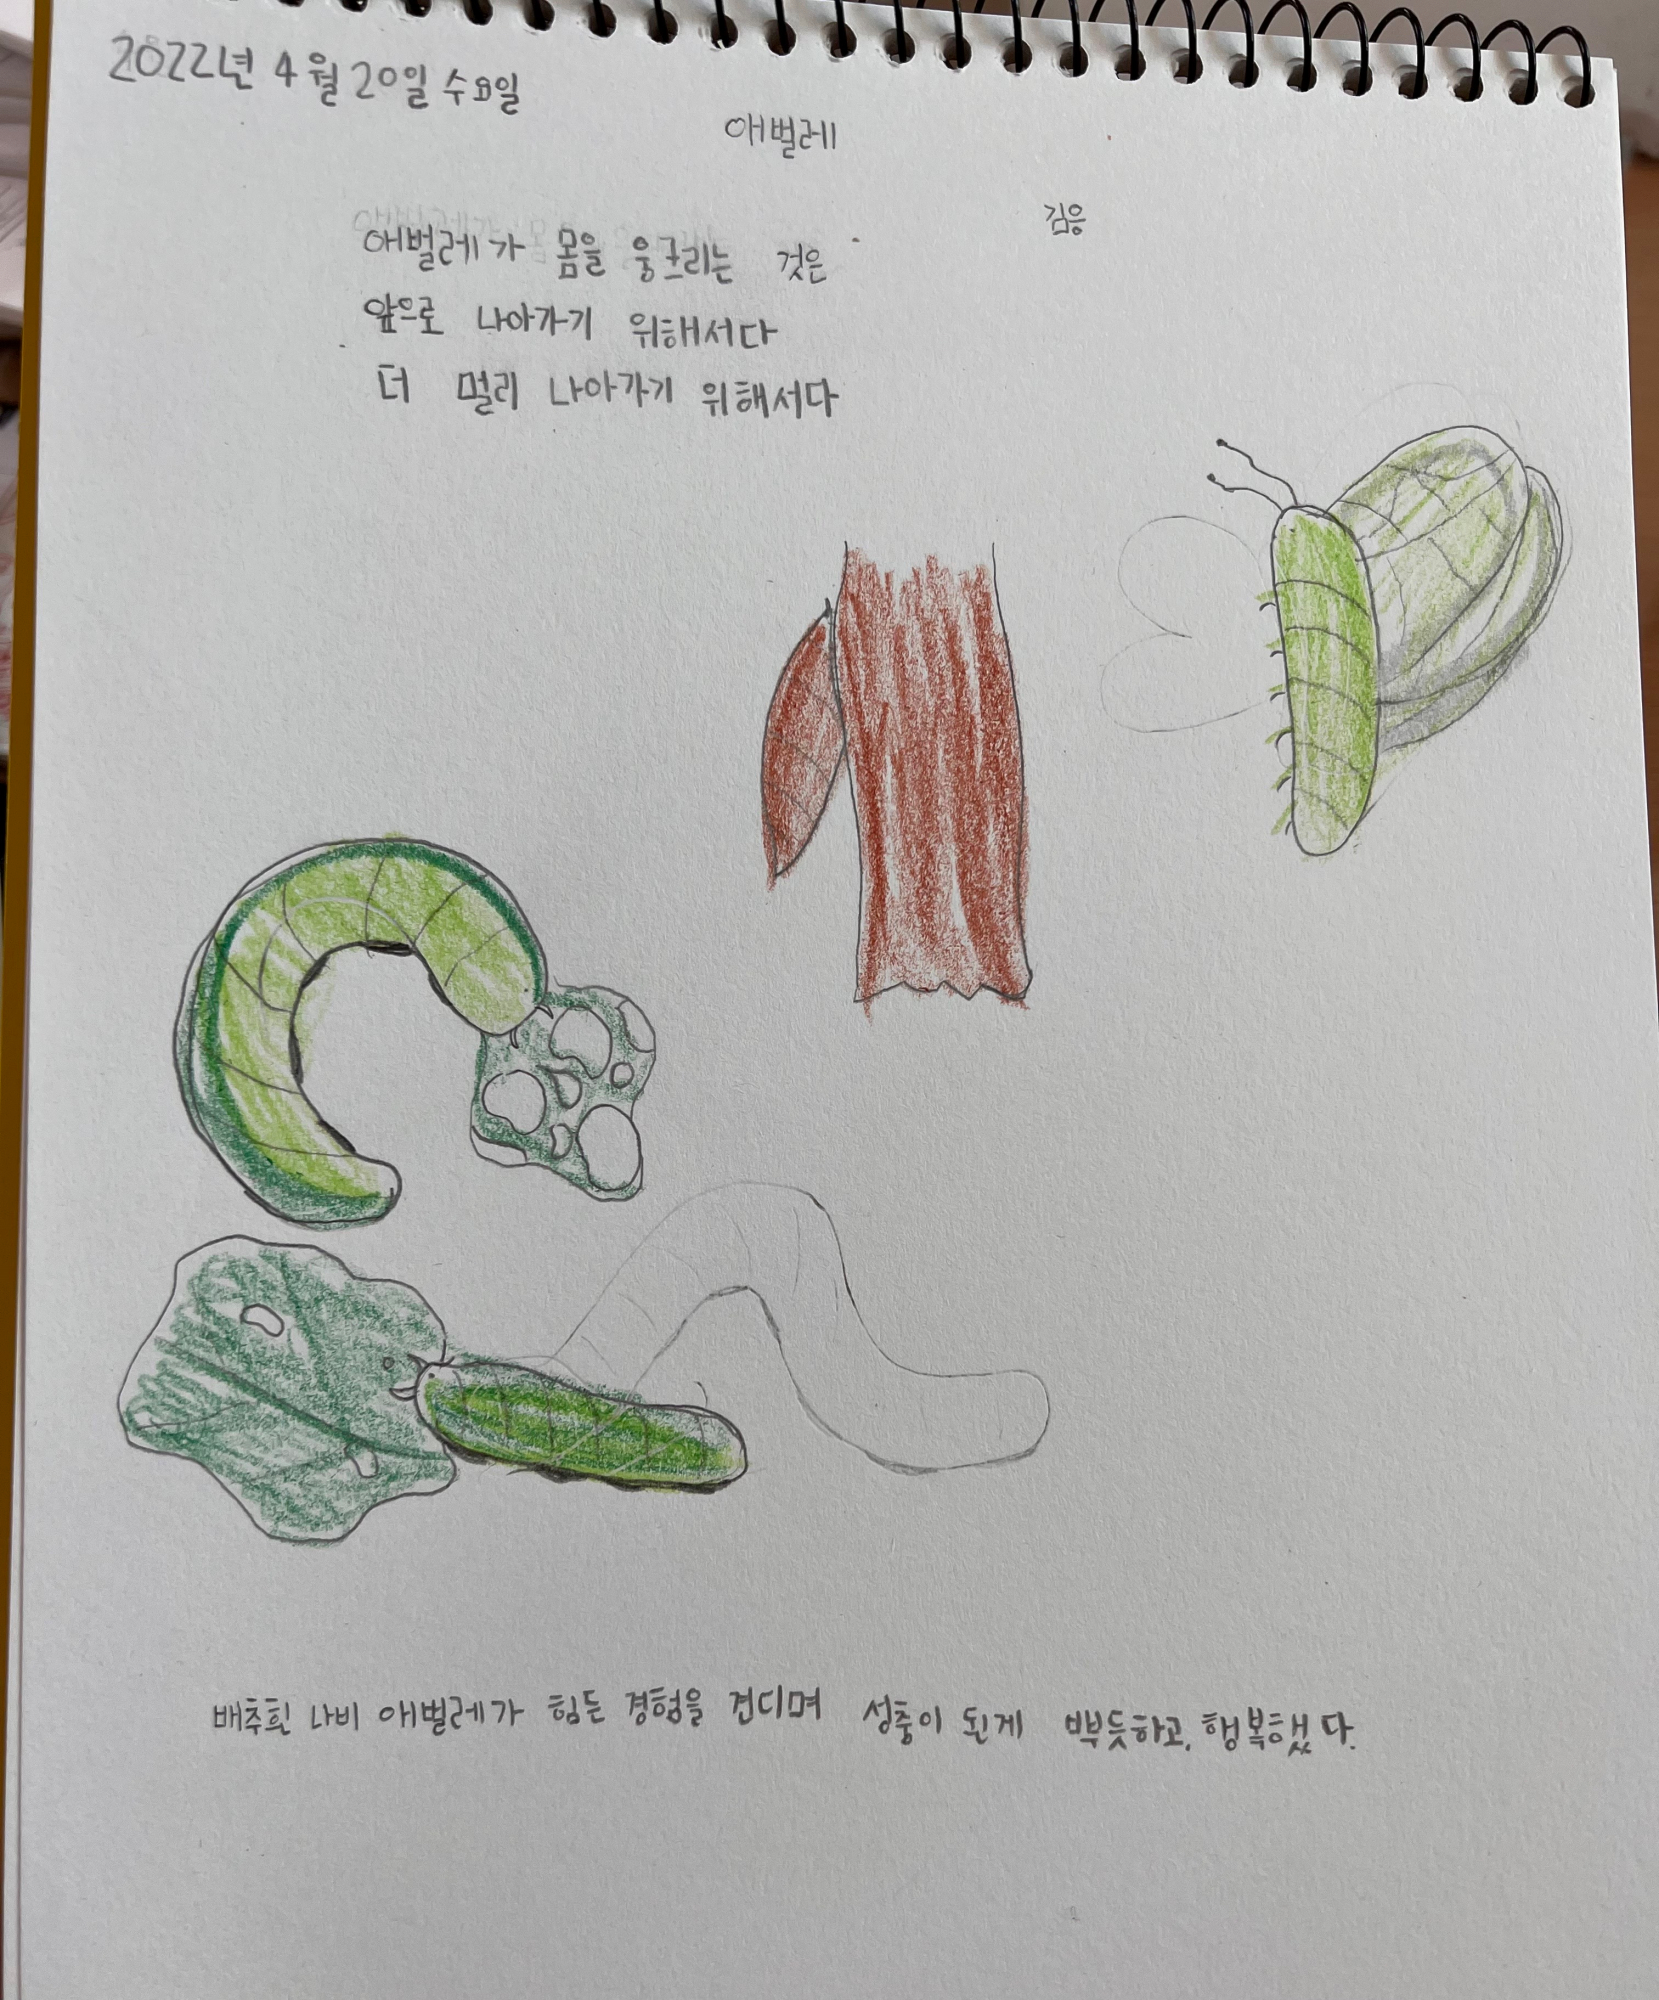 2022년 4월 20일 수요일
애벌레
김응
애벌레가 몸을 웅크리는 것은
앞으로 나아가기 위해서다
더 멀리 나아가기 위해서다
배추흰 나비 애벌레가 힘든 경험을 견디며 성충이 된게 뿌듯하고, 행복했다.